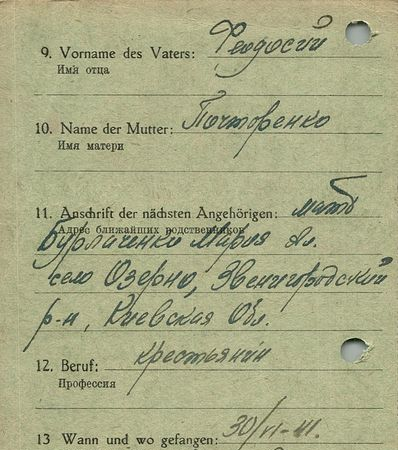 9. Vorname des Vaters: Феодосий
Имя отца
10. Name der Mutter: Почтаренко
Имя матери
11. Anschrift der nächsten Angehörigen: мать
Адрес ближайших родственников
Бурлаченко Мария Ал.
село Озерно, Звенигородский
р-н, Киевская Обл.
12. Beruf: крестьянин
Профессия
13 Wann und wo gefangen: 30/VI-41.